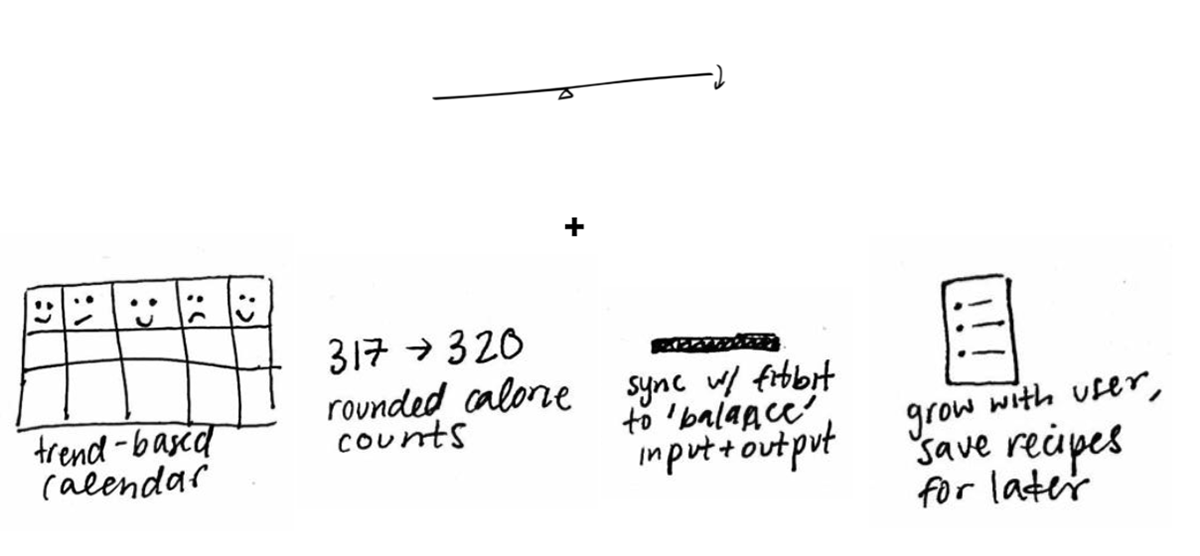 +
trend-based
calendar
317 → 320
rounded calorie
counts
sync w/ fitbit
to 'balance'
input+output
grow with user,
save recipes
for later